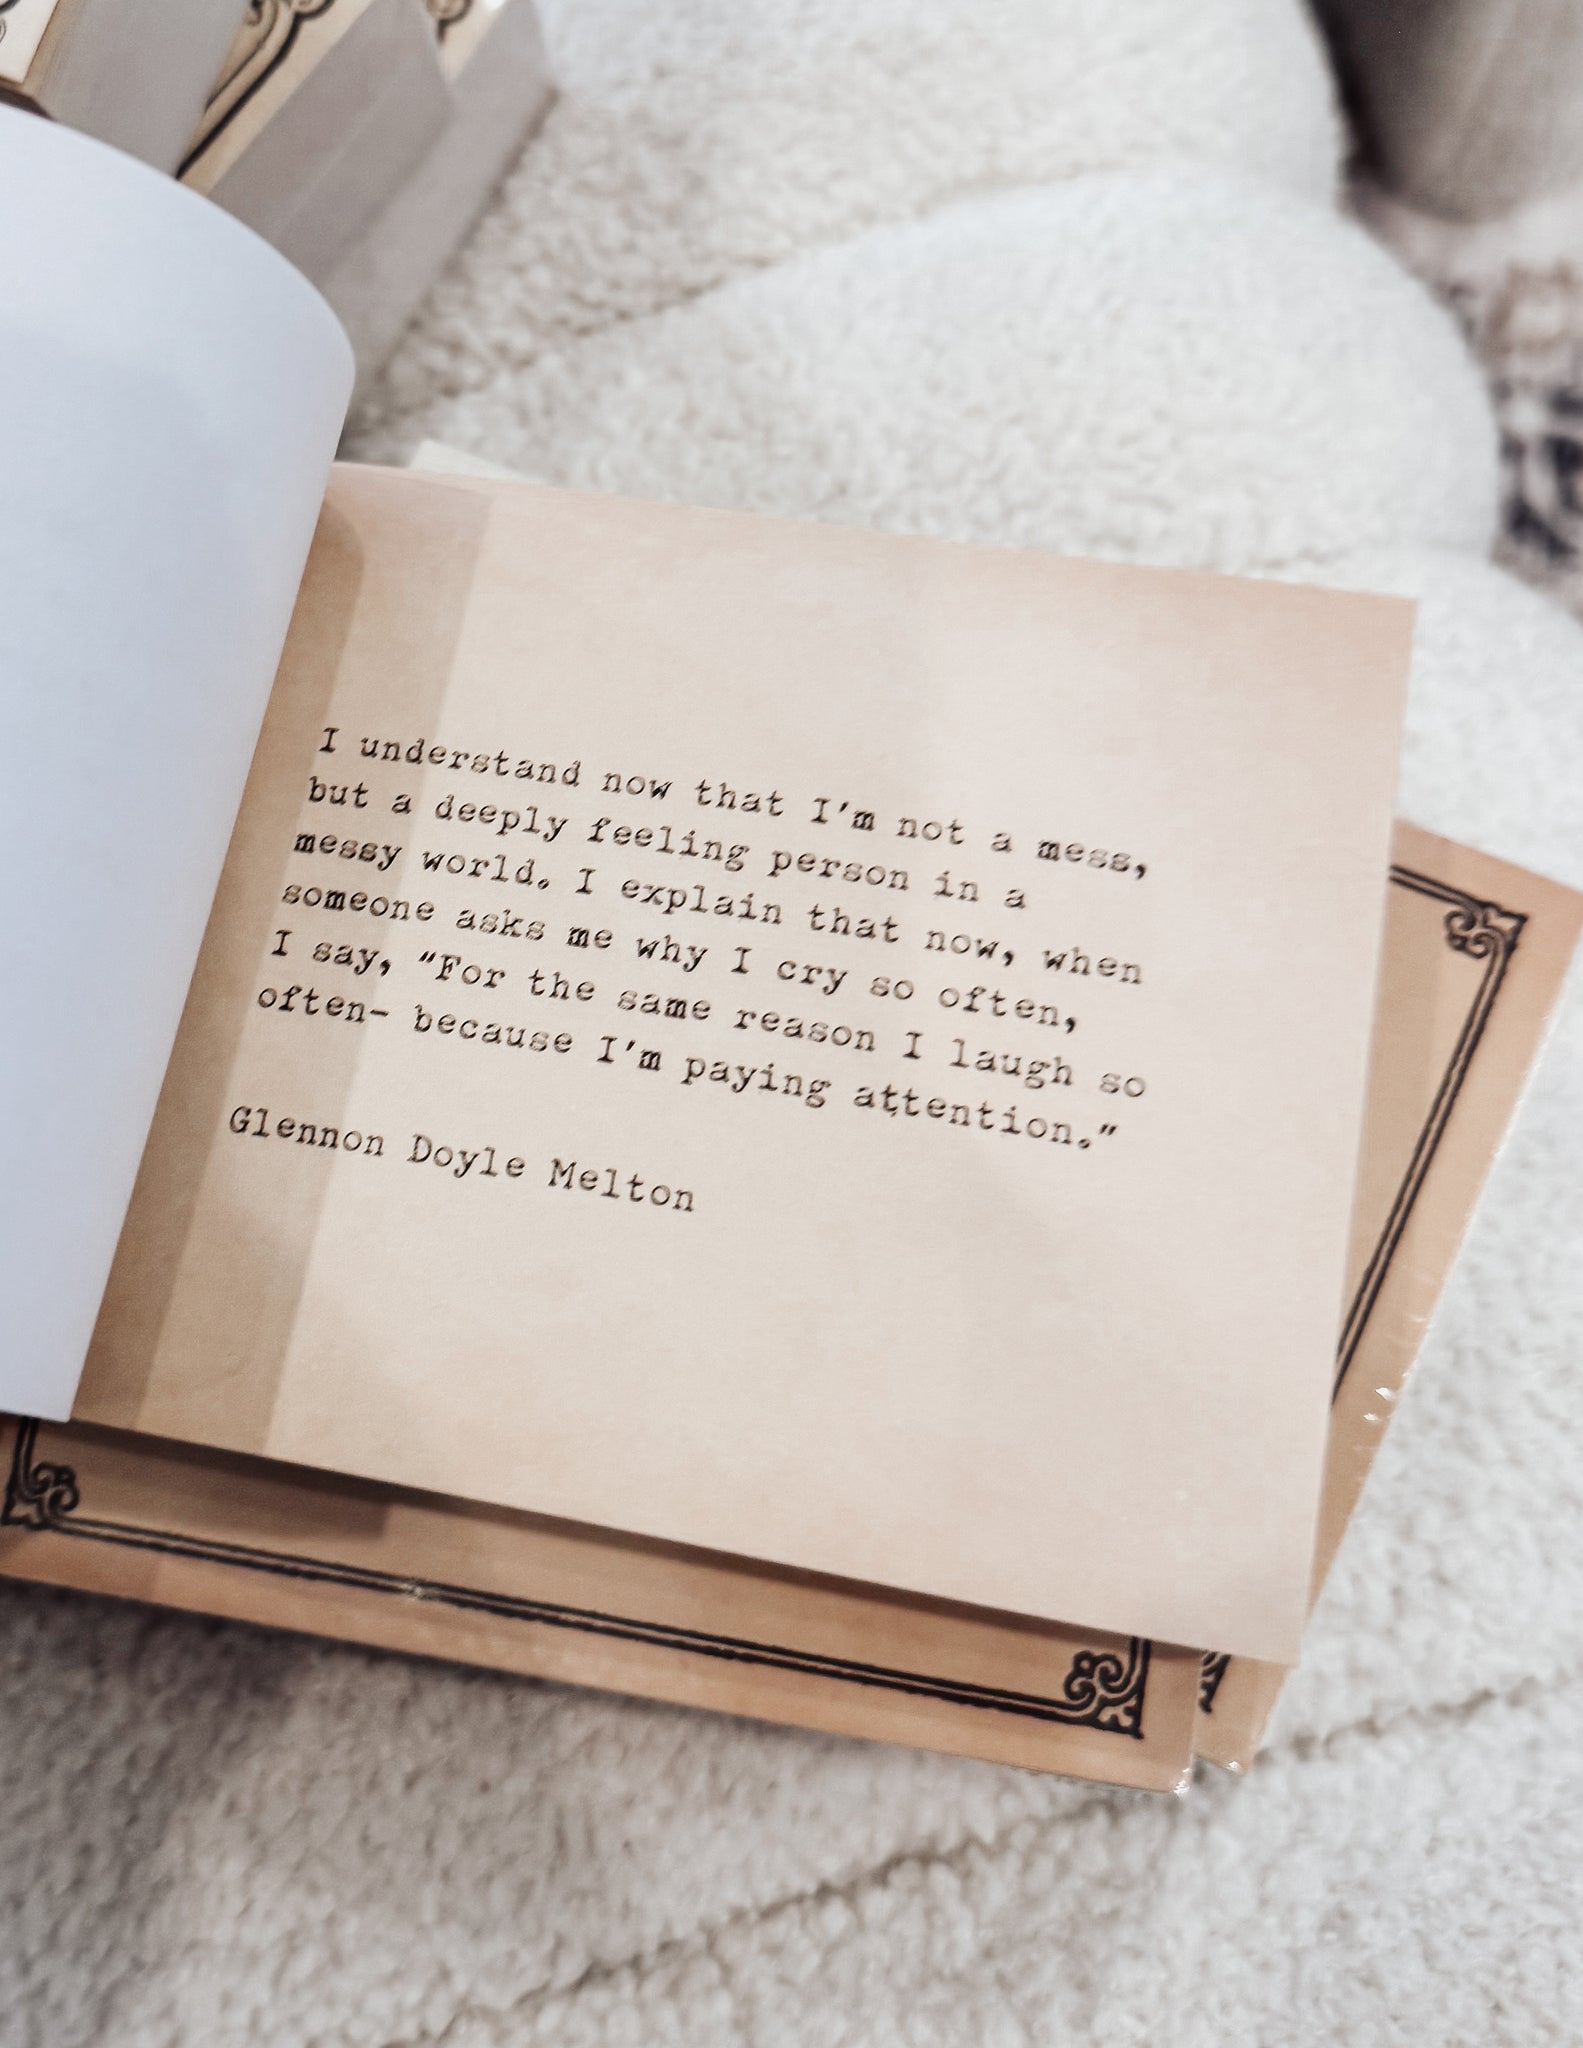 I understand now that I'm not a mess,
but a deeply feeling person in a
messy world. I explain that now, when
someone asks me why I cry so often,
I say, "For the same reason I laugh so
often- because I'm paying attention."
Glennon Doyle Melton